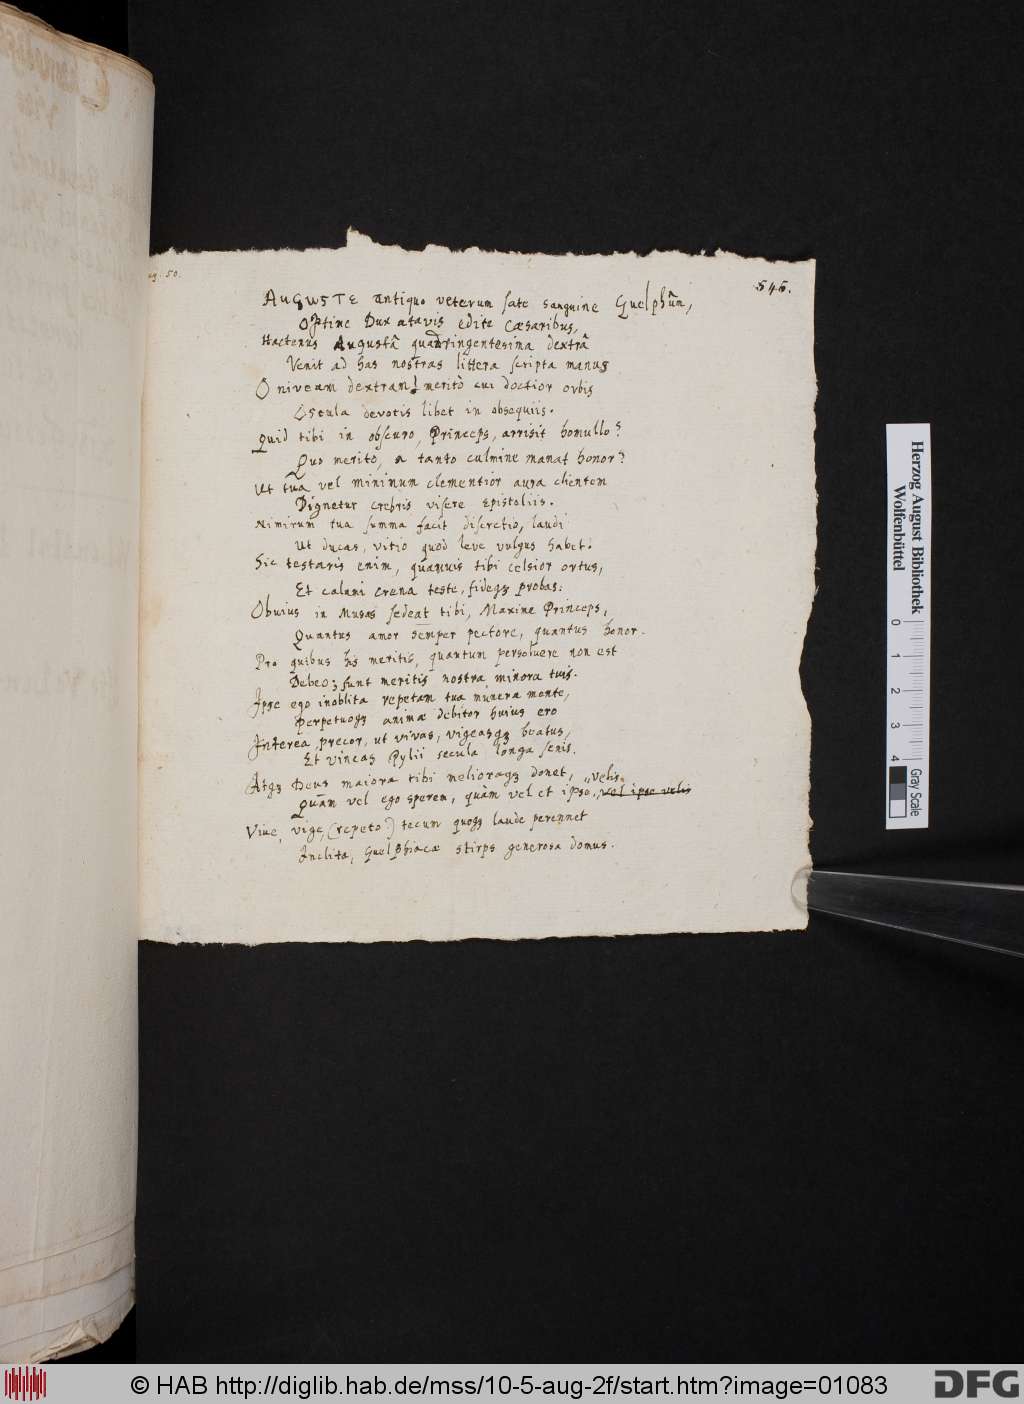 50.
545.
AUGUSTE antiquo veterum sate sanguine Guelphûm,
Optime Dux atavis edite Cæsaribus,
Hactenus Augustâ quadringentesima dextrâ
Venit ad has nostras littera scripta manus
O niveam dextram! meritò cui doctior orbis
Oscula devotis libet in obsequiis.
Quid tibi in obscuro, Princeps, arrisit homullo?
Quo meritò, a tanto culmine manat honor?
Ut tua vel minimum clementior aura clientem
Dignetur crebris visere epistoliis.
Nimirum tua summa facit discretio, laudi
Ut ducas, vitio quod leve vulgus habet.
Sic testaris enim, quamvis tibi celsior ortus,
Et calami crena teste, fideqȝ probas:
Obvius in Musas sedeat tibi, Maxime Princeps,
Quantus amor semper pectore, quantus honor.
Pro quibus his meritis, quantum persolvere non est
Debeo; sunt meritis nostra minora tuis.
Ipse ego inoblita repetam tua munera mente,
Perpetuoqȝ animæ debitor huius ero
Interea, precor, ut vivas, vigeasqȝ beatus,
Et vincas Pylii secula longa senis.
Atqȝ Deus maiora tibi melioraqȝ donet,
Quàm vel ego sperem, quàm vel et ipse, velis. vel ipse velis
Vive, vige, (repeto:) tecum quoqȝ laude perennet
Inclita, Guelphiacæ stirps generosa domus.
Herzog August Bibliothek
Wolfenbüttel
0 1 2 3 4
Gray Scale
© HAB http://diglib.hab.de/mss/10-5-aug-2f/start.htm?image=01083
DFG